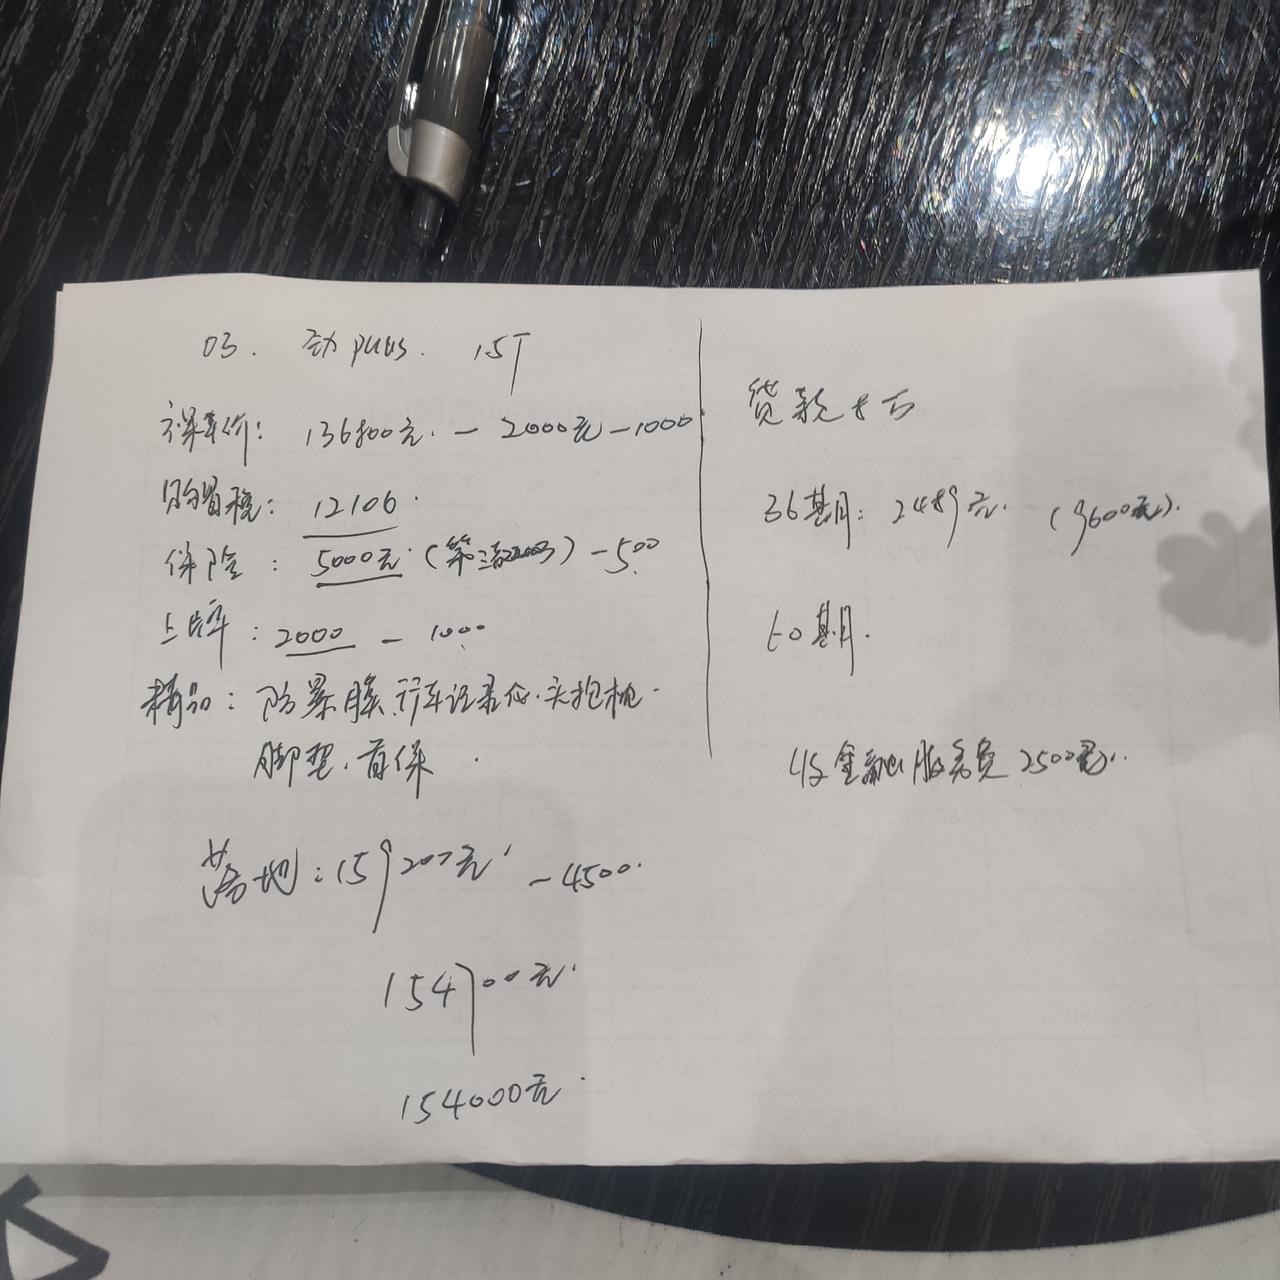 03. 劲 plus. 1.5T
裸车价: 136800元. - 2000元 - 1000
购置税: 12106.
保险: 5000元. (第三者200万) - 500
上牌: 2000 - 1000
精品: 防暴膜.行车记录仪.头抱枕.
脚垫.首保.
落地: 159207元. - 4500.
154700元.
154000元.
贷款8万
36期: 2489元. (9600元).
60期.
4S金融服务费2500元.